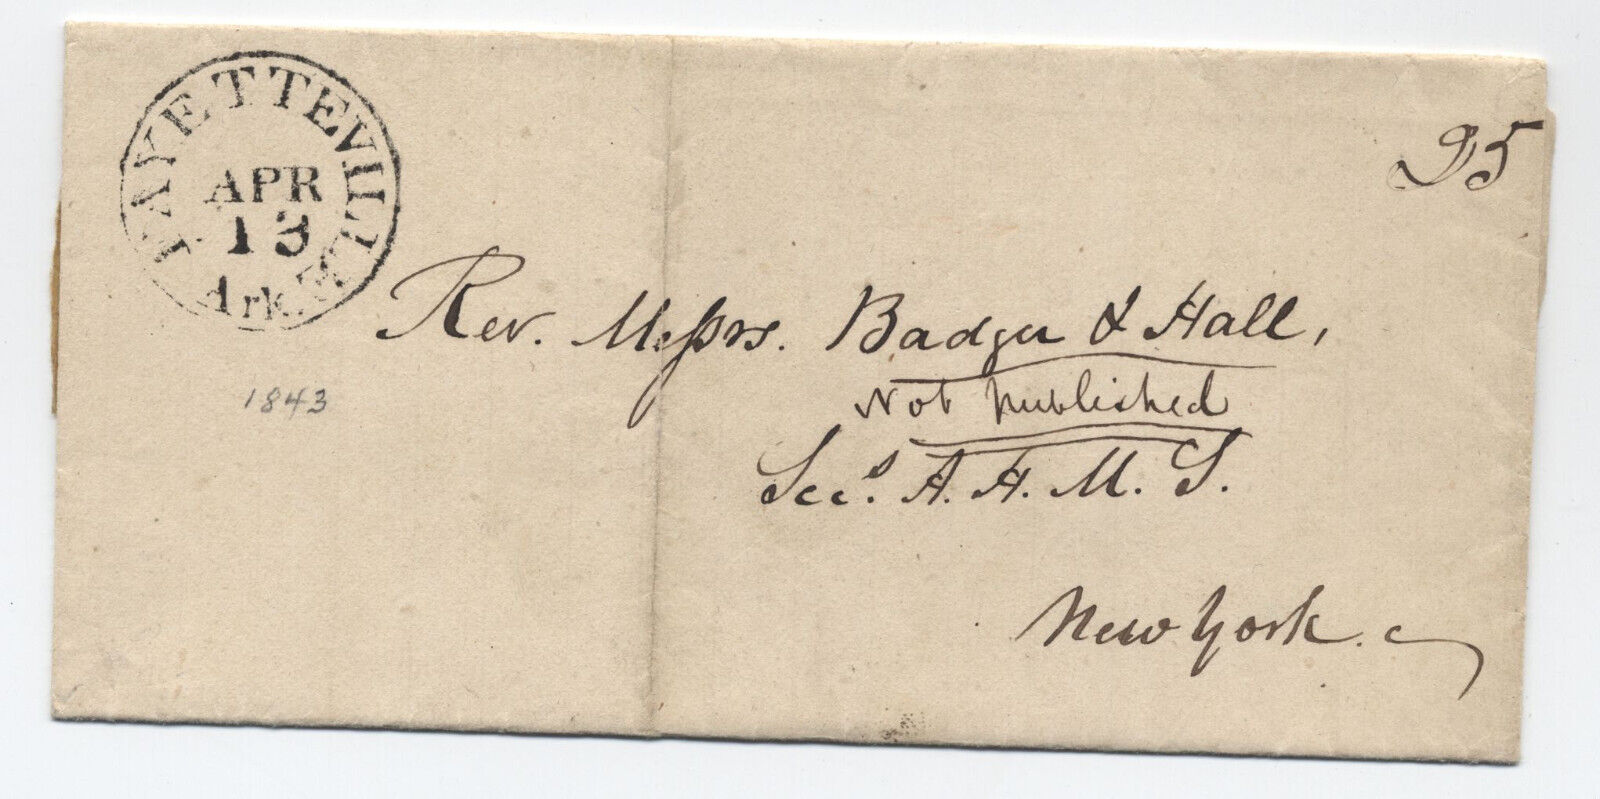 FAYETTEVILLE
APR
13
Ark.
25
Rev. Messrs. Badger & Hall,
Not published
1843
Sec.s A. H. M. S.
New York.